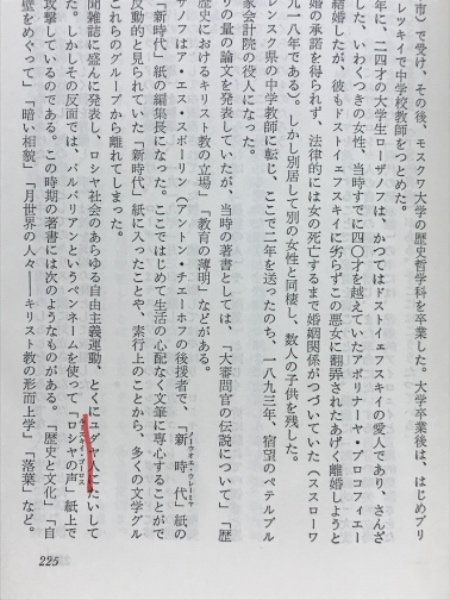 市）で受け、その後、モスクワ大学の歴史哲学科を卒業した。大学卒業後は、はじめブリ
レツキイで中学校教師をつとめた。
年に、二四才の大学生ローザノフは、かつてはドストイェフスキイの愛人であり、さんざ
した、いわくつきの女性、当時すでに四〇才を越えていたアポリナーヤ・プロコフィエー
結婚したが、彼もドストイェフスキイに劣らずこの悪女に翻弄されたあげく離婚しようと
婚の承諾を得られず、法律的には女の死亡するまで婚姻関係がつづいていた（ススローワ
九一八年である）。しかし別居して別の女性と同棲し、数人の子供を残した。
レンスク県の中学教師に転じ、ここで二年を送ったのち、一八九三年、宿望のペテルブル
家会計院の役人になった。
りの量の論文を発表していたが、当時の著書としては、「大審問官の伝説について」「歴
歴史におけるキリスト教の立場」「教育の薄明」などがある。
ザノフはア・エス・スボーリン（アントン・チエーホフの後援者で、「新時代」紙の
「新時代」紙の編集長になった。ここではじめて生活の心配なく文筆に専心することがで
反動的と見られていた「新時代」紙に入ったことや、素行上のことから、多くの文学グル
これらのグループから離れてしまった。
聞雑誌に盛んに発表し、ロシヤ社会のあらゆる自由主義運動、とくにユダヤ人にたいして
た。しかしその反面では、バルバリアンというペンネームを使って「ロシヤの声」紙上で
攻撃しているのである。この時期の著書には次のようなものがある。「歴史と文化」「自
壁をめぐって」「暗い相貌」「月世界の人々――キリスト教の形而上学」「落葉」など。
225